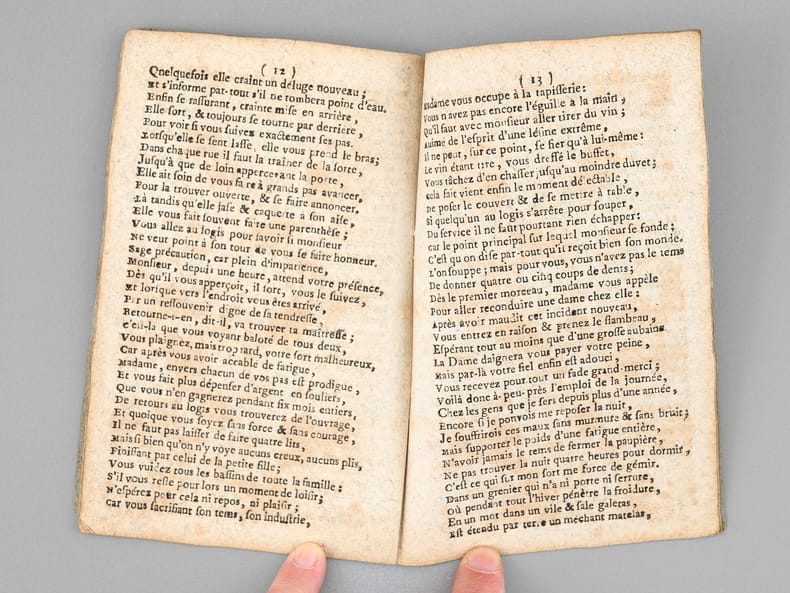 ( 12 )
Quelquefois elle craint un déluge nouveau ;
Et s'informe par-tout s'il ne tombera point d'eau.
Enfin se rassurant, crainte mise en arrière,
Elle sort, & toujours se tourne par derriere,
Pour voir si vous suivez exactement ses pas.
Lorsqu'elle se sent lasse, elle vous prend le bras;
Dans chaque rue il faut la traîner de la sorte,
Jusqu'à que de loin appercevant la porte,
Elle ait soin de vous faire à grands pas avancer,
Pour la trouver ouverte, & se faire annoncer.
Là tandis qu'elle jase & caquette à son aise,
Elle vous fait souvent faire une parenthèse ;
Vous allez au logis pour savoir si monsieur
Ne veut point à son tour de vous se faire honneur.
Sage précaution, car plein d'impatience,
Monsieur, depuis une heure, attend votre présence,
Dès qu'il vous apperçoit, il sort, vous le suivez,
Et lorique vers l'endroit vous êtes arrivé,
Par un ressouvenir digne de sa tendresse,
Retourne-t-en, dit-il, va trouver ta maîtresse ;
c'est-là que vous voyant baloté de tous deux,
Vous plaignez, mais trop tard, votre sort malheureux,
Car après vous avoir accablé de fatigue,
Madame, envers chacun de vos pas est prodigue,
Et vous fait plus dépenser d'argent en souliers,
Que vous n'en gagnerez pendant six mois entiers,
De retours au logis vous trouverez de l'ouvrage,
Et quoique vous soyez sans force & sans courage,
Il ne faut pas laisser de faire quatre lits,
Mais si bien qu'on n'y voye aucuns creux, aucuns plis,
Finissant par celui de la petite fille;
Vous vuidez tous les bassins de toute la famille :
S'il vous reste pour lors un moment de loisir;
N'espérez pour cela ni repos, ni plaisir ;
Car vous sacrifiant son tems, son industrie,
( 13 )
Madame vous occupe à la tapisserie:
Vous n'avez pas encore l'éguille à la main,
Qu'il faut avec monsieur aller tirer du vin ;
Animé de l'esprit d'une lésine extrême,
Il ne peut, sur ce point, se fier qu'à lui-même:
Le vin étant tiré, vous dressé le buffet,
Vous tâchez d'en chasser jusqu'au moindre duvet;
Cela fait vient enfin le moment délectable,
De poser le couvert & de se mettre à table,
Si quelqu'un au logis s'arrête pour souper,
Du service il ne faut pourtant rien échapper:
Car le point principal sur lequel monsieur se fonde ;
C'est qu'on dise par-tout qu'il reçoit bien son monde.
L'on soupe ; mais pour vous, vous n'avez pas le tems
De donner quatre ou cinq coups de dents;
Dès le premier morceau, madame vous appèle
Pour aller reconduire une dame chez elle :
Après avoir maudit cet incident nouveau,
Vous entrez en raison & prenez le flambeau,
Espérant tout au moins que d'une grosse aubaine
La Dame daignera vous payer votre peine,
Mais par-là votre fiel enfin est adouci,
Vous recevez pour tout un fade grand-merci ;
Voilà donc à-peu-près l'emploi de la journée,
Chez les gens que je sers depuis plus d'une année,
Encore si je pouvois me reposer la nuit,
Je souffrirois ces maux sans murmure & sans bruit;
Mais supporter le poids d'une fatigue entière,
N'avoir jamais le tems de fermer la paupière,
Ne pas trouver la nuit quatre heures pour dormir,
C'est ce qui sur mon sort me force de gémir.
Dans un grenier qui n'a ni porte ni serrure,
Où pendant tout l'hiver pénètre la froidure,
En un mot dans un vile & sale galetas,
Est étendu par terre un méchant matelas,